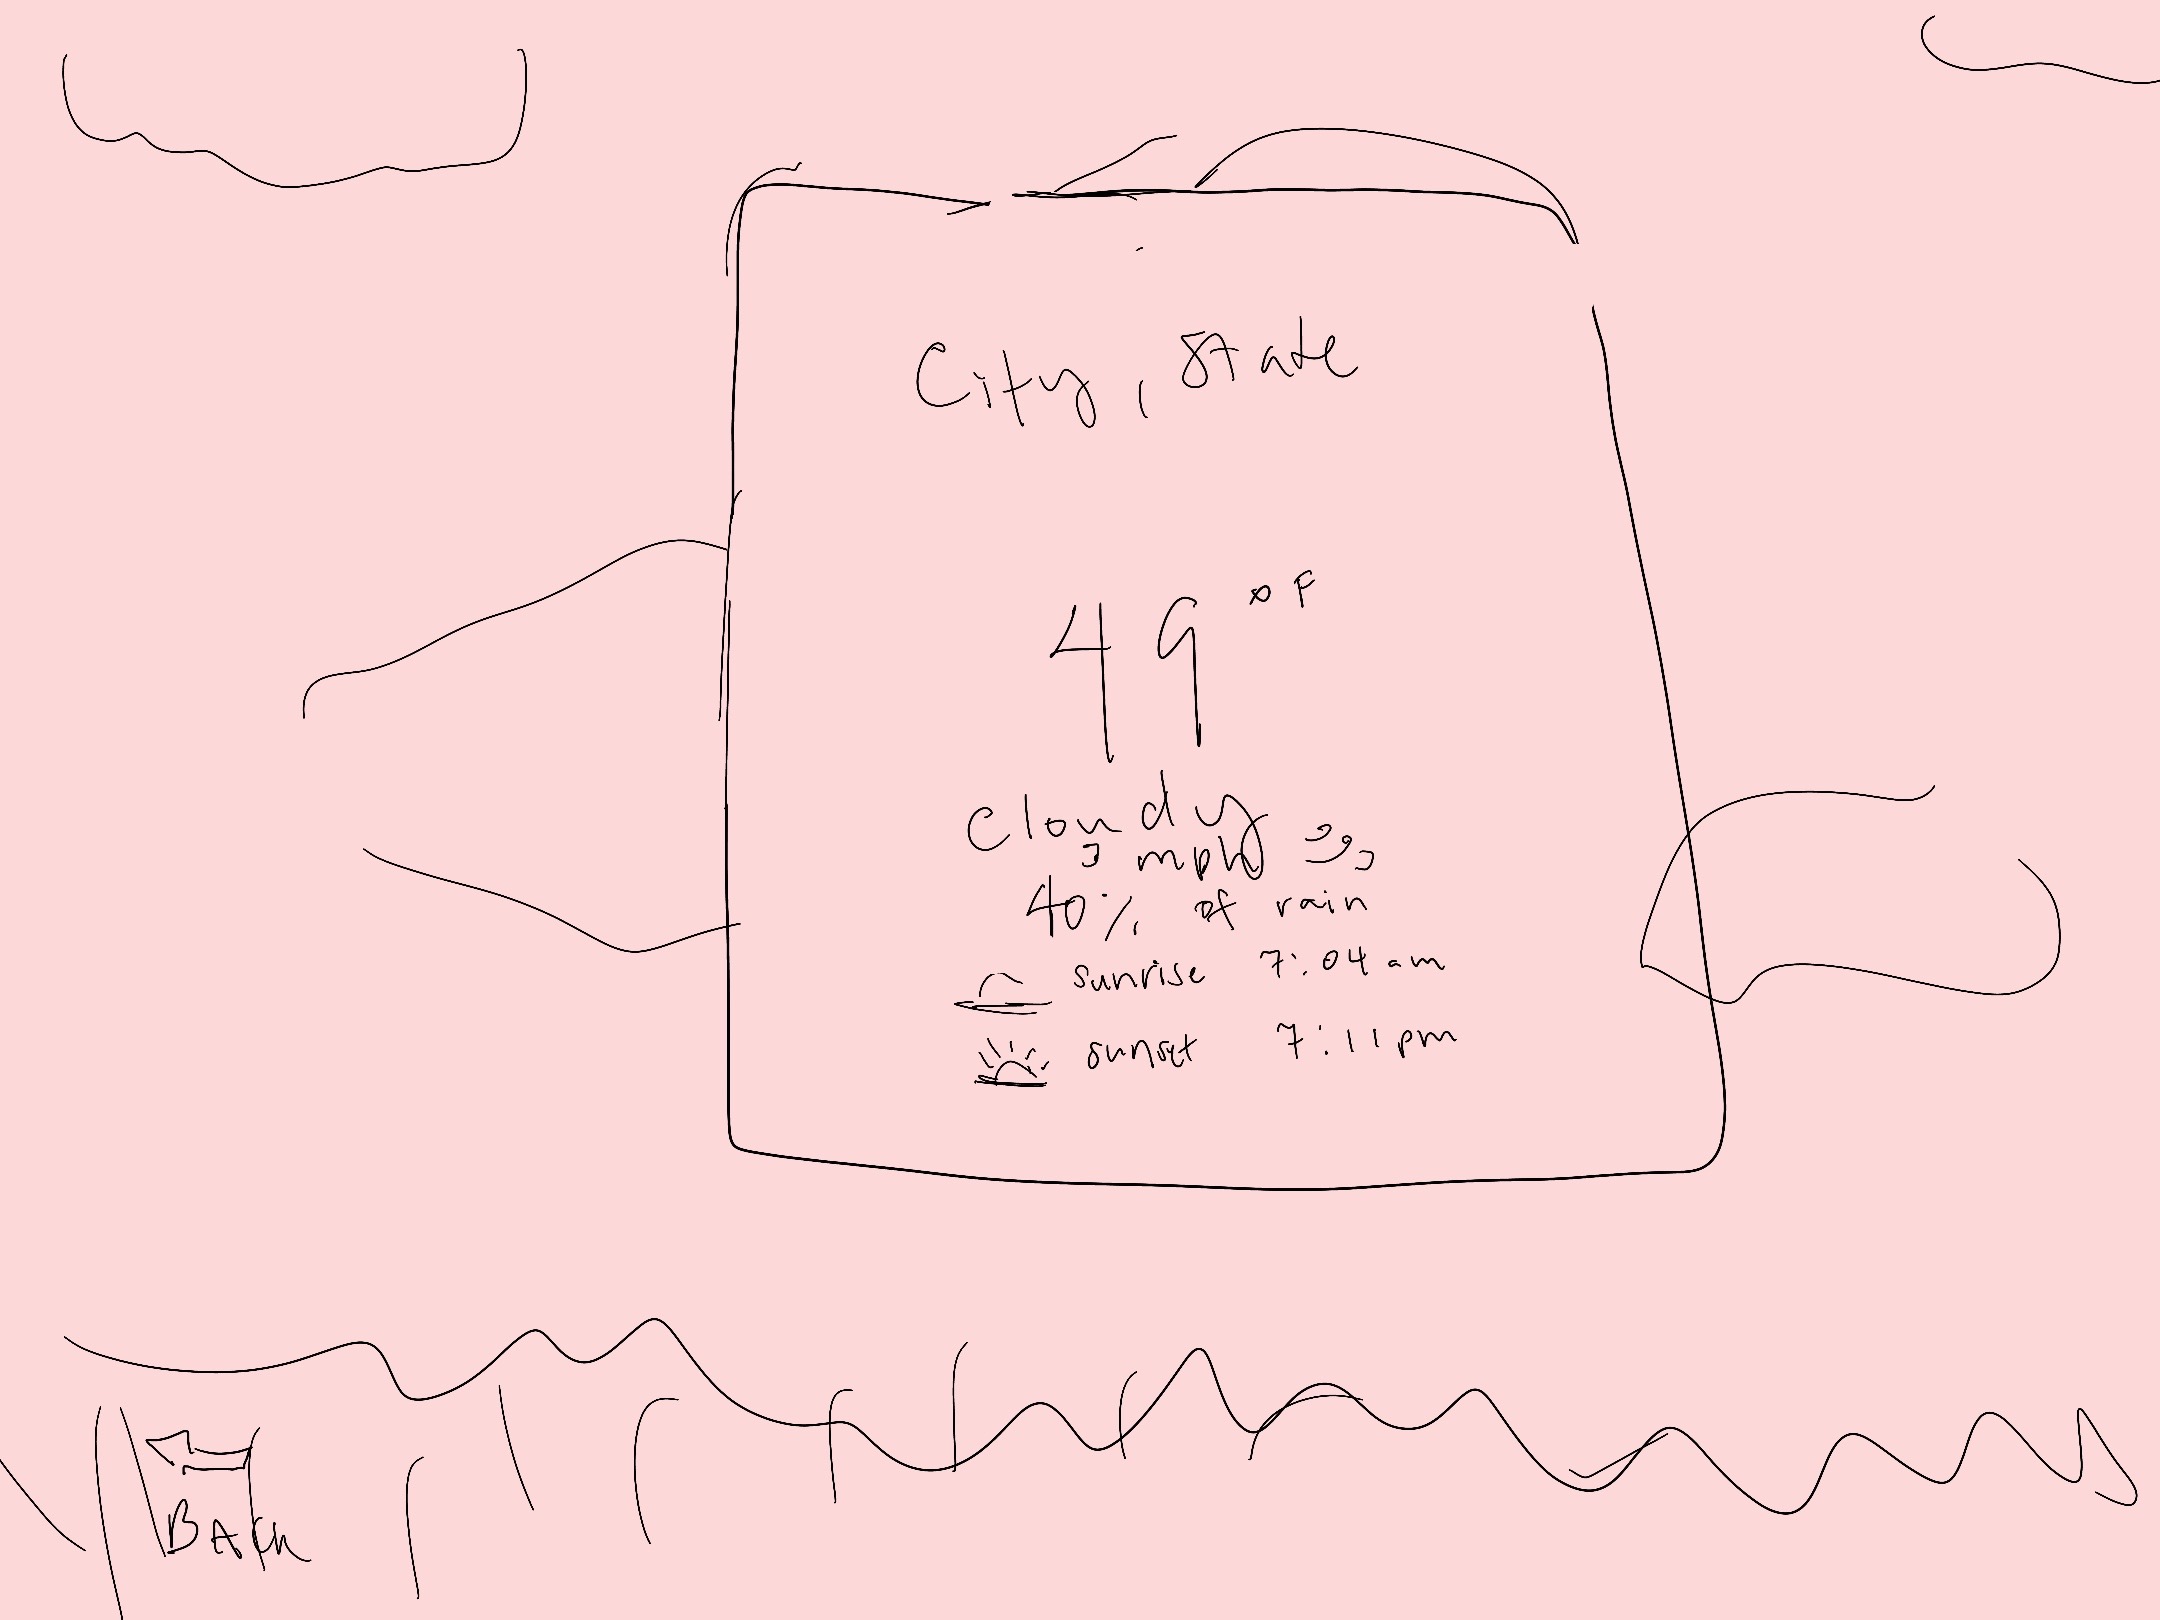 City, State
49 °F
Cloudy
mph
40% of rain
sunrise 7:04 am
sunset 7:11 pm
BACK